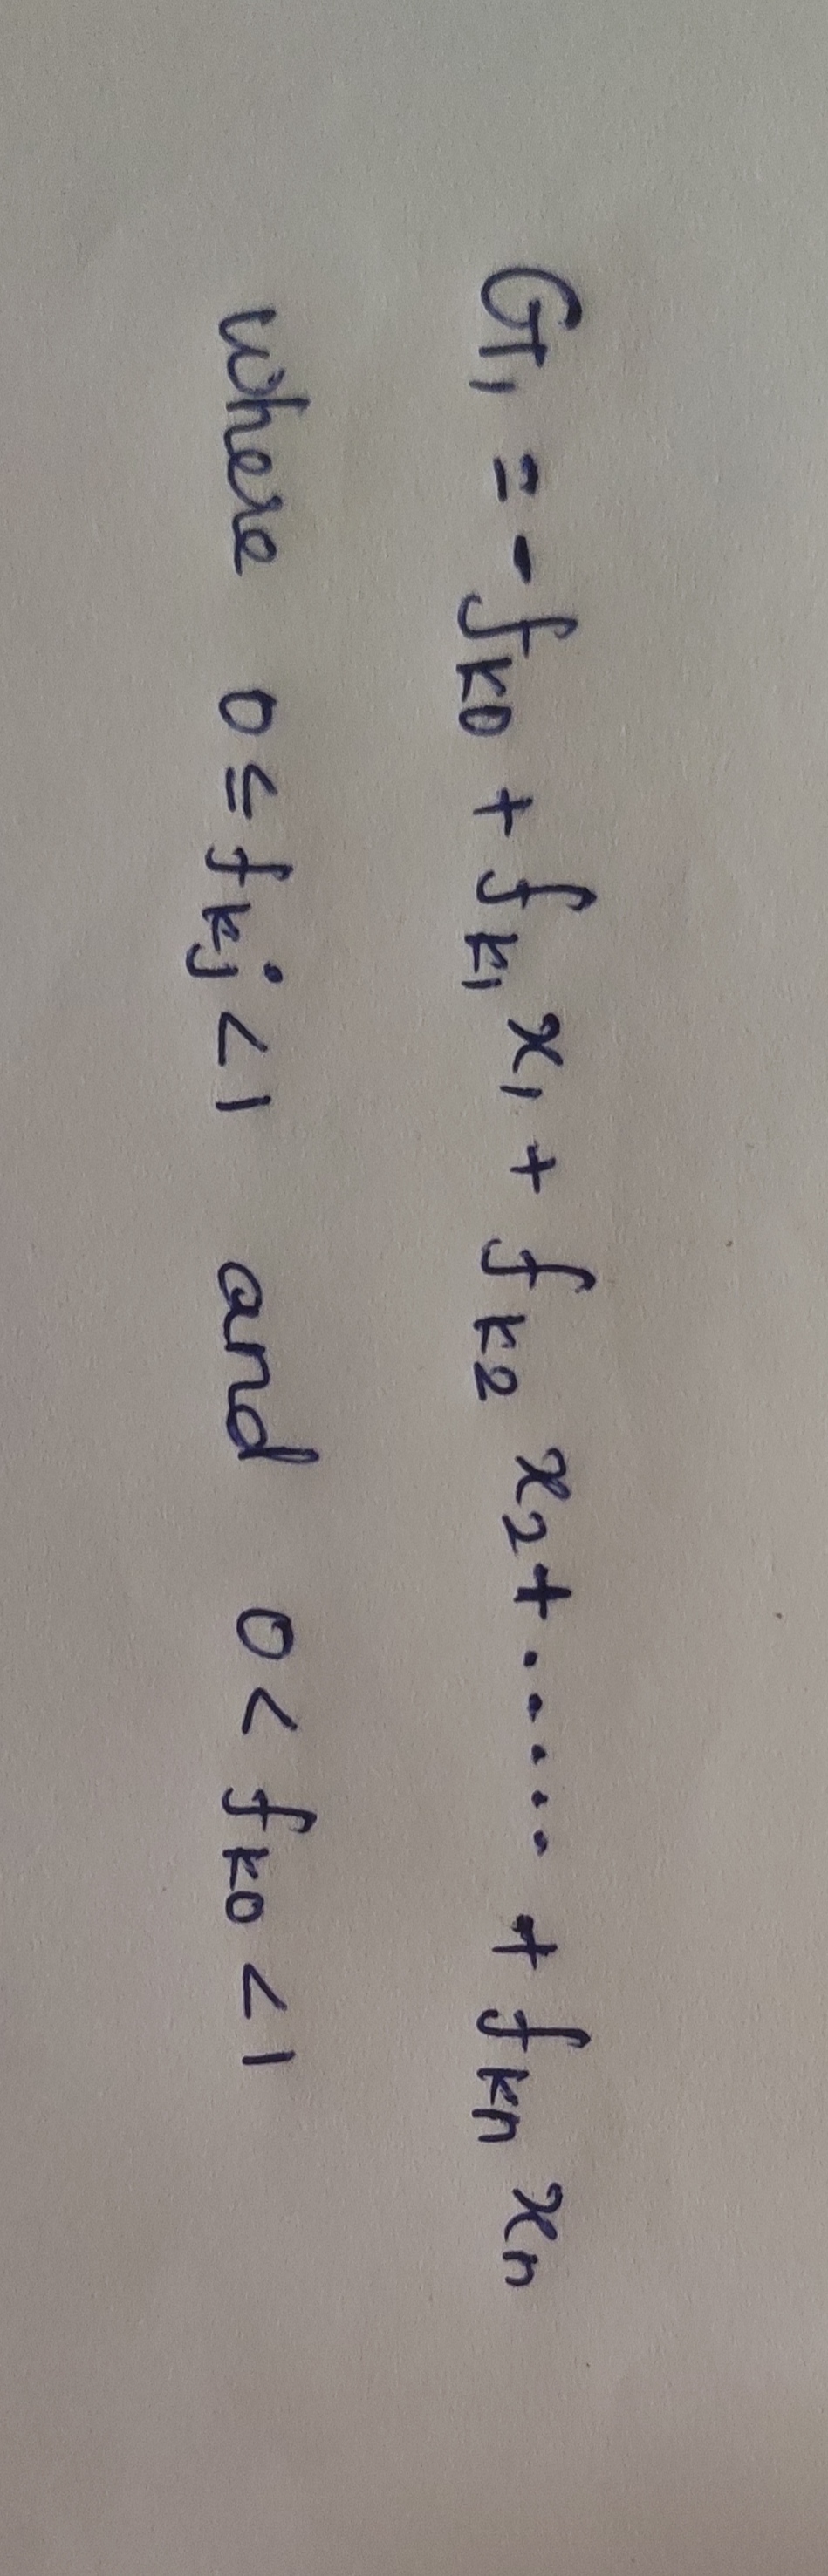 G₁ = - fₖ₀ + fₖ₁ x₁ + fₖ₂ x₂ + ..... + fₖₙ xₙ
where 0 ≤ fₖⱼ < 1 and 0 < fₖ₀ < 1